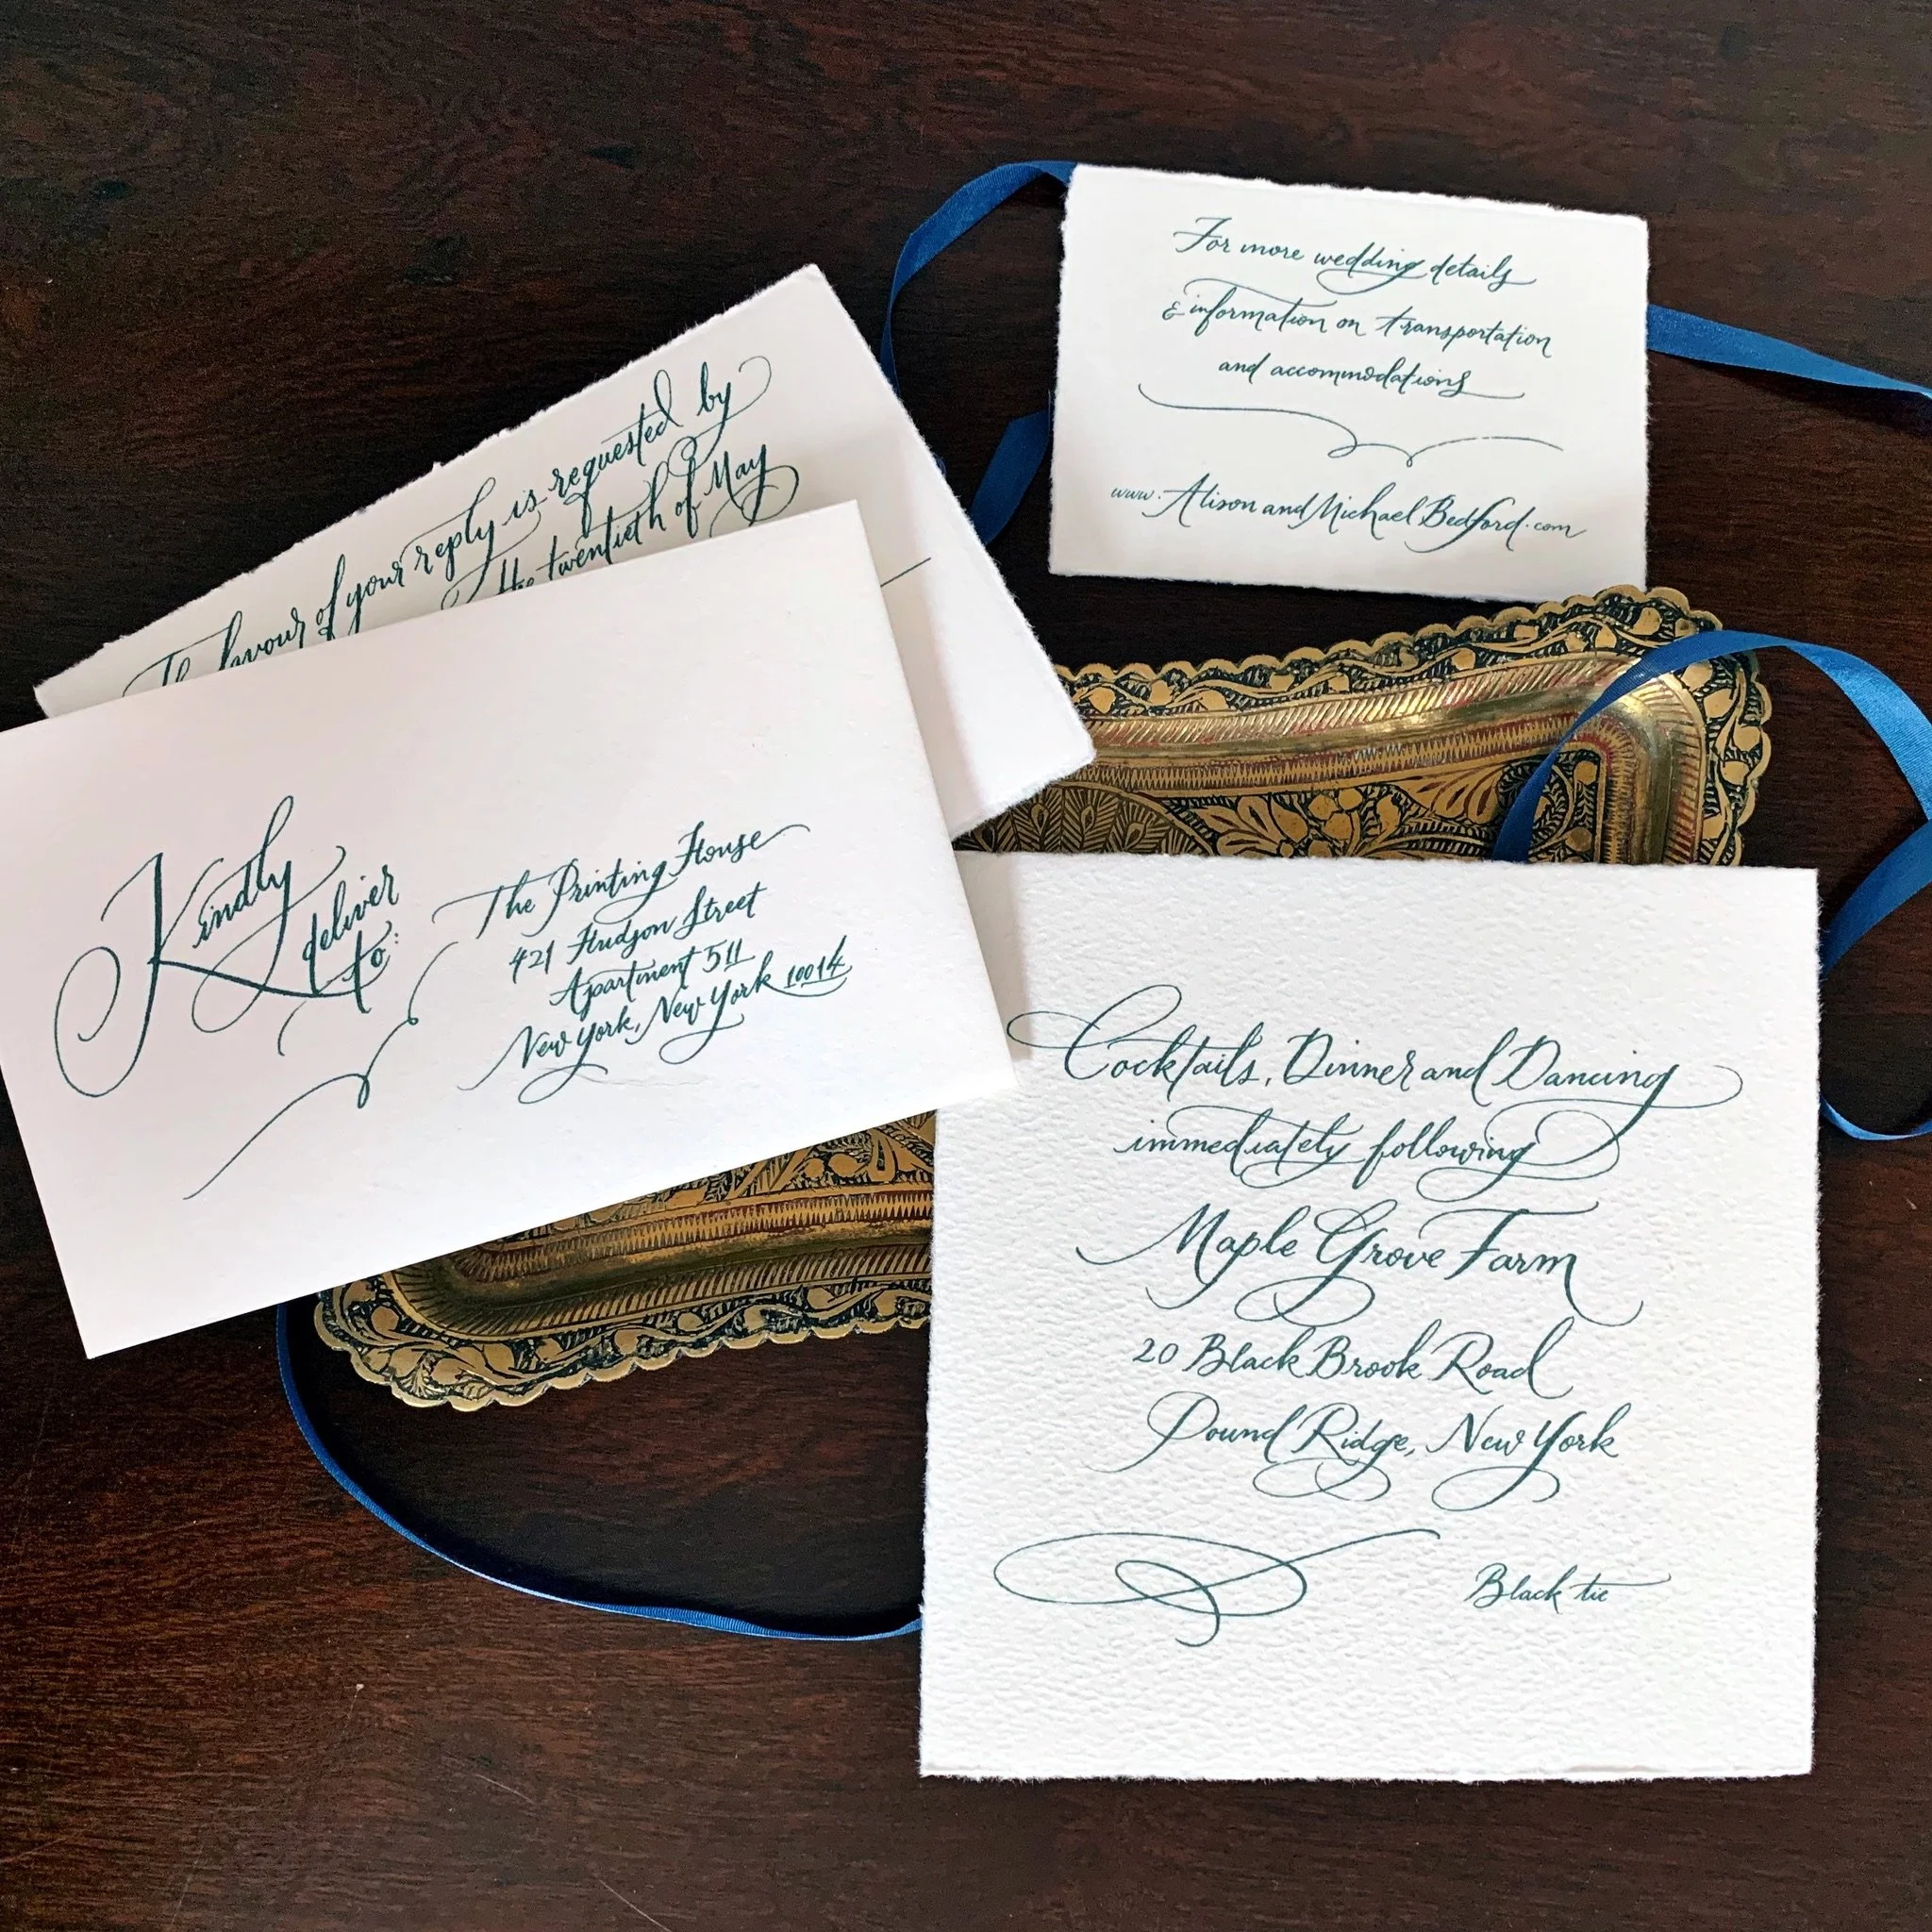 For more wedding details
& information on transportation
and accommodations
www.AlisonandMichaelBedford.com
The favour of your reply is requested by
the twentieth of May
Kindly
deliver
to:
The Printing House
421 Hudson Street
Apartment 511
New York, New York 10014
Cocktails, Dinner and Dancing
immediately following
Maple Grove Farm
20 Black Brook Road
Pound Ridge, New York
Black tie